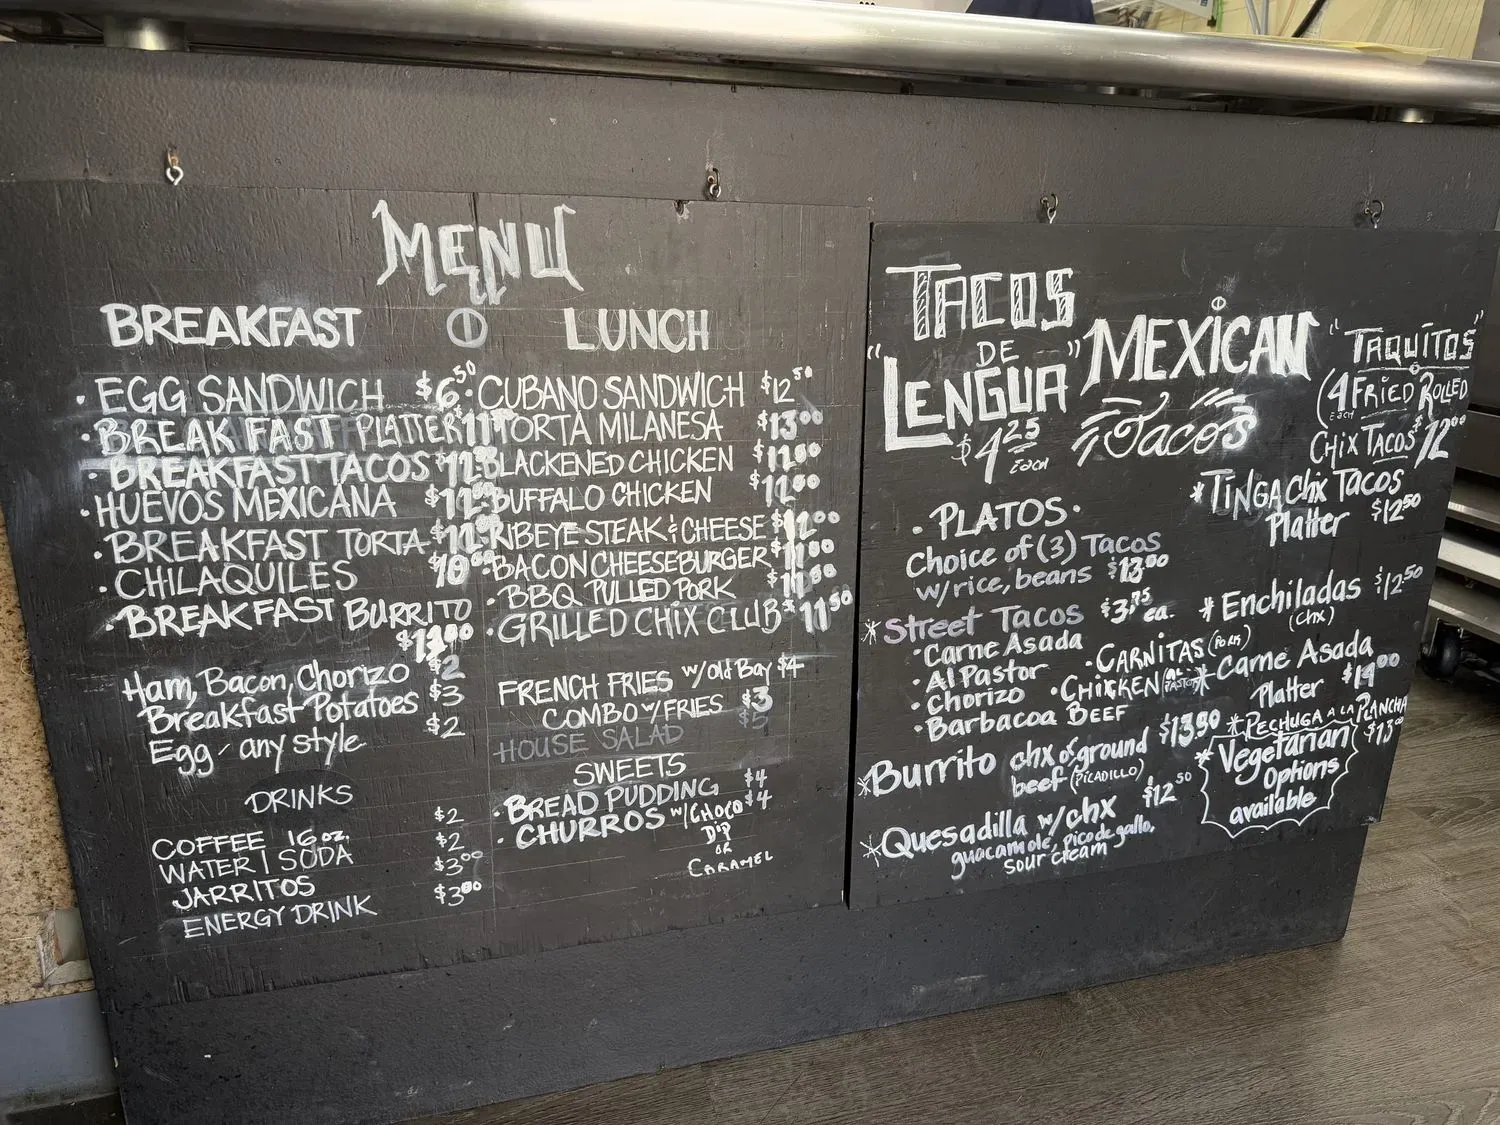 MENU
BREAKFAST
• EGG SANDWICH $6.50
• BREAKFAST PLATTER $11
• BREAKFAST TACOS $12
• HUEVOS MEXICANA $12
• BREAKFAST TORTA $12
• CHILAQUILES $10
• BREAKFAST BURRITO
Ham, Bacon, Chorizo $2
Breakfast Potatoes $3
Egg - any style $2
DRINKS
COFFEE 16 oz. $2
WATER | SODA $2
JARRITOS $3.00
ENERGY DRINK $3.00
LUNCH
• CUBANO SANDWICH $12.50
• TORTA MILANESA $13.00
• BLACKENED CHICKEN
• BUFFALO CHICKEN
• RIBEYE STEAK & CHEESE $12.00
• BACON CHEESEBURGER $11.00
• BBQ PULLED PORK
• GRILLED CHIX CLUB $11.50
FRENCH FRIES w/ Old Bay $4
COMBO w/ FRIES $3
HOUSE SALAD $5
SWEETS
• BREAD PUDDING $4
• CHURROS w/ CHOCO $4
Dip
OR
CARAMEL
TACOS
DE
"LENGUA"
$4.25
Each
MEXICAN
Tacos
• PLATOS •
Choice of (3) Tacos
w/rice, beans $13.00
* Street Tacos $3.75 ea.
• Carne Asada
• Al Pastor
• Chorizo
• Barbacoa BEEF
• CARNITAS (PORK)
• CHICKEN (AL PASTOR)
* Burrito chx or ground $13.50
beef (PICADILLO)
* Quesadilla w/chx $12.50
guacamole, pico de gallo,
sour cream
"TAQUITOS"
(4 FRIED ROLLED
EACH
CHIX TACOS $12.00
* TINGA Chx Tacos
Platter $12.50
* Enchiladas $12.50
(chx)
* Carne Asada
Platter $14.00
* PECHUGA A LA PLANCHA
$13.00
* Vegetarian
Options
available